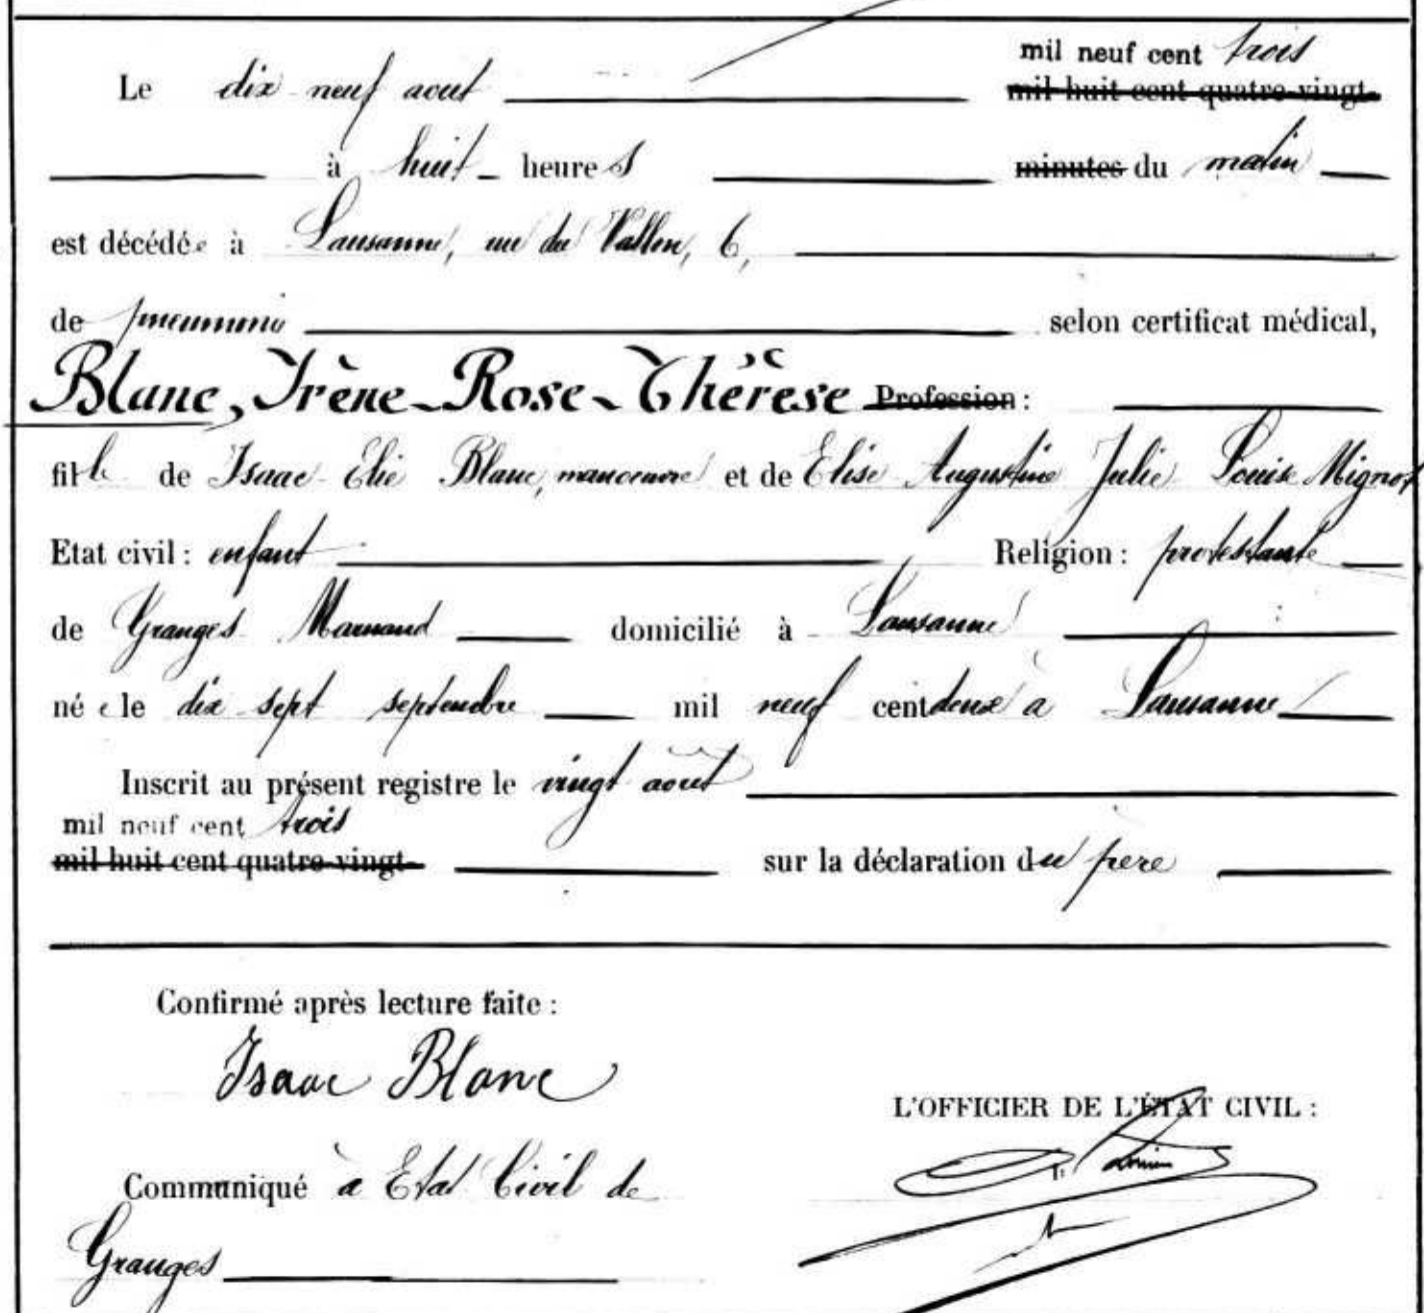 mil neuf cent trois
Le dix neuf aout mil huit cent quatre-vingt-
à huit heures minutes du matin
est décédée à Lausanne, rue du Vallon, 6,
de pneumonie selon certificat médical,
Blanc, Irène-Rose-Thérèse Profession :
fille de Isaac Elie Blanc, manoeuvre et de Elise Augustine Julie Louise Mignot
Etat civil : enfant Religion : protestante
de Granges Marnand domicilié à Lausanne
née le dix sept septembre mil neuf cent deux à Lausanne
Inscrit au présent registre le vingt août
mil neuf cent trois
mil huit cent quatre-vingt- sur la déclaration du père
Confirmé après lecture faite :
Isaac Blanc
L'OFFICIER DE L'ÉTAT CIVIL :
Communiqué à Etat Civil de
Granges